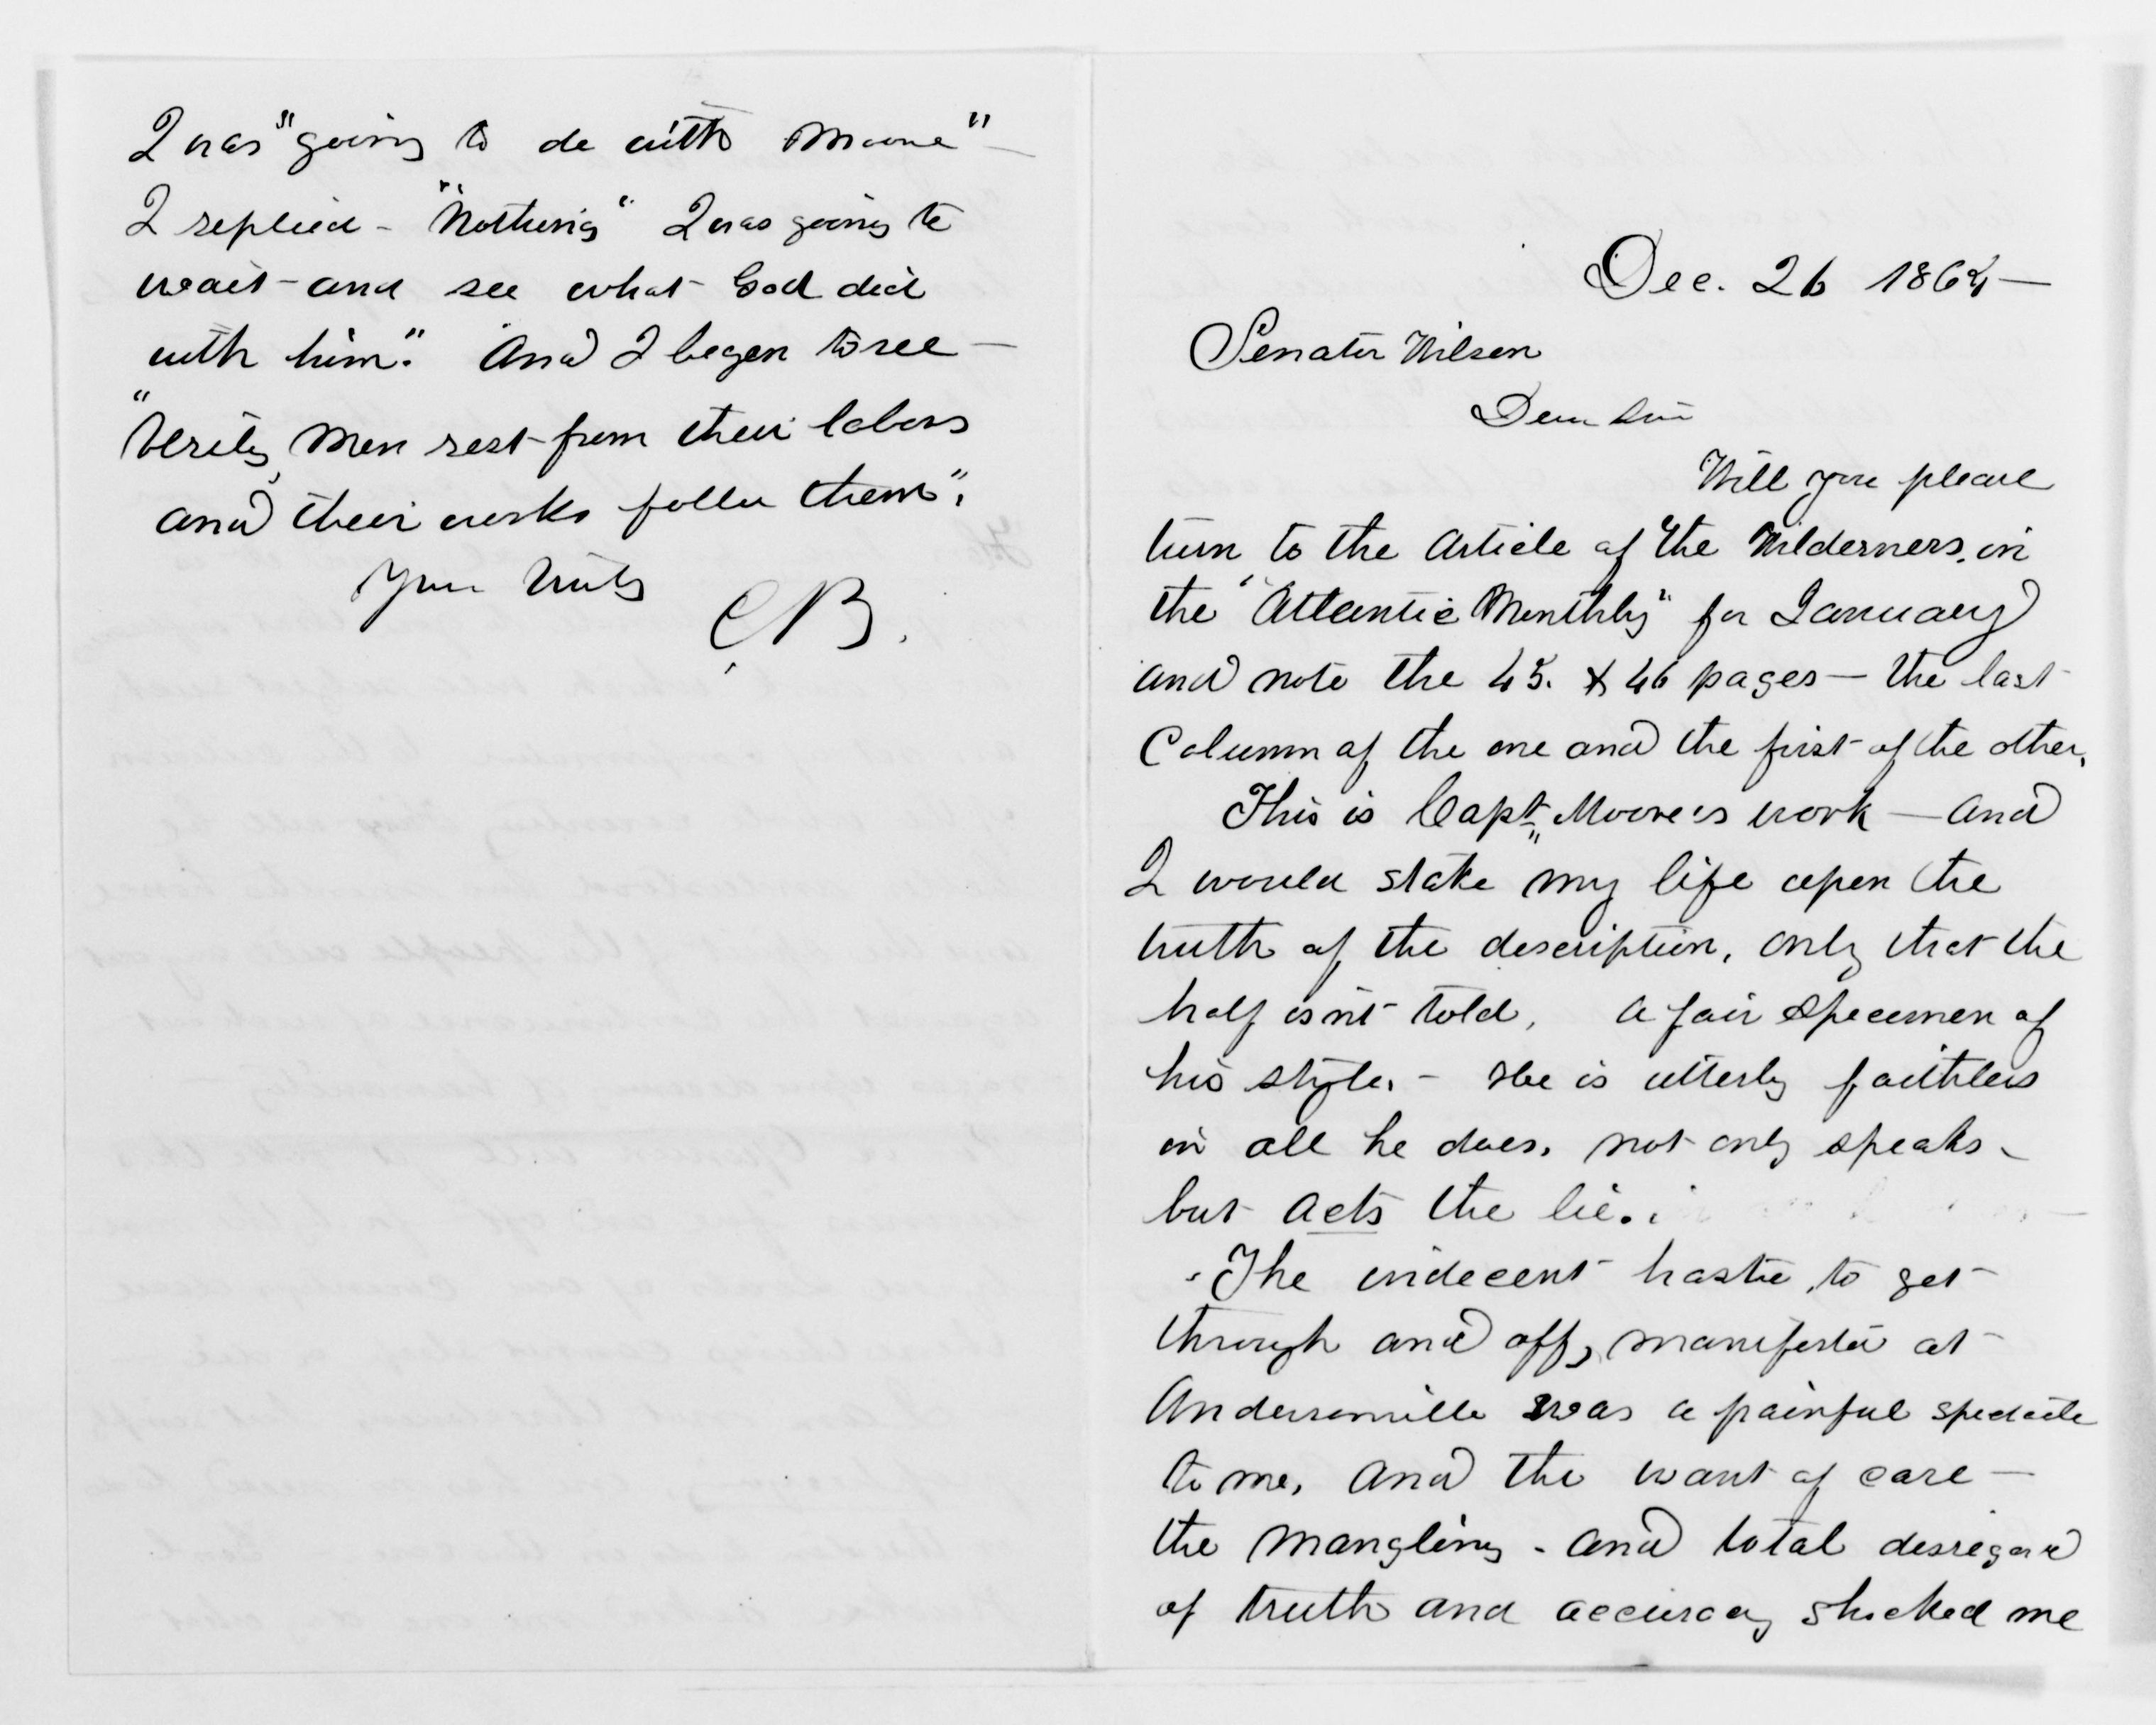 I was "going to do with Moore" —
I replied - "Nothing" I was going to
wait - and see what God did
with him". And I began to see —
"Verily, men rest from their labors
and their works follow them".
Your truly
CB.
Dec. 26 1864 —
Senator Wilson
Dear Sir
Will you please
turn to the Article of "the Wilderness, in
the "Atlantic Monthly" for January
and note the 45. & 46 pages — the last
Column of the one and the first of the other.
This is Capt. Moore's work — and
I would stake my life upon the
truth of the description, only that the
half isn't told, a fair specimen of
his style. - He is utterly faithless
in all he does. not only speaks -
but acts the lie.
The indecent haste to get
through and off, manifested at
Andersonville was a painful spectacle
to me, and the want of care —
the mangling - and total disregard
of truth and accuracy shocked me